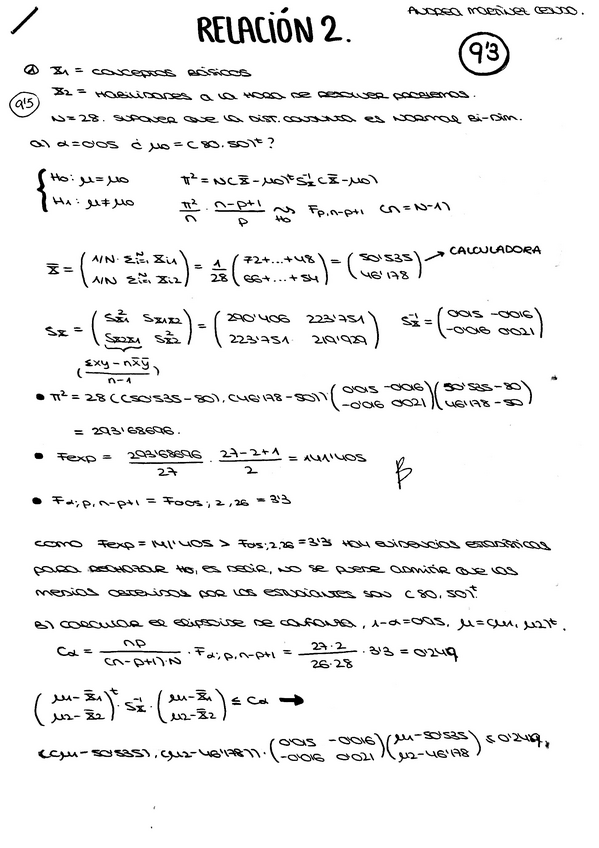 ANDREA MARTÍNEZ
RELACIÓN 2.
9'3
① X1 = CONCEPTOS BÁSICOS
9'5
X2 = HABILIDADES A LA HORA DE RESOLVER PROBLEMAS.
N=28. SUPONER QUE LA DIST. CONJUNTA ES NORMAL BI-DIM.
a) α=0'05 ¿ μ0 = (80, 50)ᵗ?
{ H0: μ=μ0 T² = N(X̄-μ0)ᵗ Sx⁻¹ (X̄-μ0)
H1: μ≠μ0 T²/n · (n-p+1)/p ~H0 Fp,n-p+1 (n=N-1)
X̄ = (1/N Σᵢ₌₁ᴺ Xi1 ; 1/N Σᵢ₌₁ᴺ Xi2) = 1/28 (72+...+48 ; 66+...+54) = (50'535 ; 46'178) → CALCULADORA
Sx = (S²x1 Sx1x2 ; Sx2x1 S²x2) = (290'406 223'751 ; 223'751 219'929) Sx⁻¹ = (0'015 -0'016 ; -0'016 0'021)
(Σxy - nx̄ȳ)/(n-1)
• T² = 28 ((50'535-80), (46'178-50)) (0'015 -0'016 ; -0'016 0'021) (50'535-80 ; 46'178-50)
= 293'68696.
• Fexp = 293'68696/27 · (27-2+1)/2 = 141'405
• Fα; p, n-p+1 = F0'05; 2, 26 = 3'3
COMO Fexp = 141'405 > F0'05; 2,26 = 3'3 HAY EVIDENCIAS ESTADÍSTICAS
PARA RECHAZAR H0, ES DECIR, NO SE PUEDE ADMITIR QUE LAS
MEDIAS OBTENIDAS POR LOS ESTUDIANTES SON (80, 50)ᵗ
B) CALCULAR EL ELIPSOIDE DE CONFIANZA, 1-α=0'95, μ=(μ1, μ2)ᵗ.
Cα = np/((n-p+1)·N) · Fα; p, n-p+1 = 27·2/26·28 · 3'3 = 0'249
(μ1-X̄1 ; μ2-X̄2)ᵗ · Sx⁻¹ · (μ1-X̄1 ; μ2-X̄2) ≤ Cα →
((μ1-50'535), (μ2-46'178)) · (0'015 -0'016 ; -0'016 0'021) (μ1-50'535 ; μ2-46'178) ≤ 0'249,